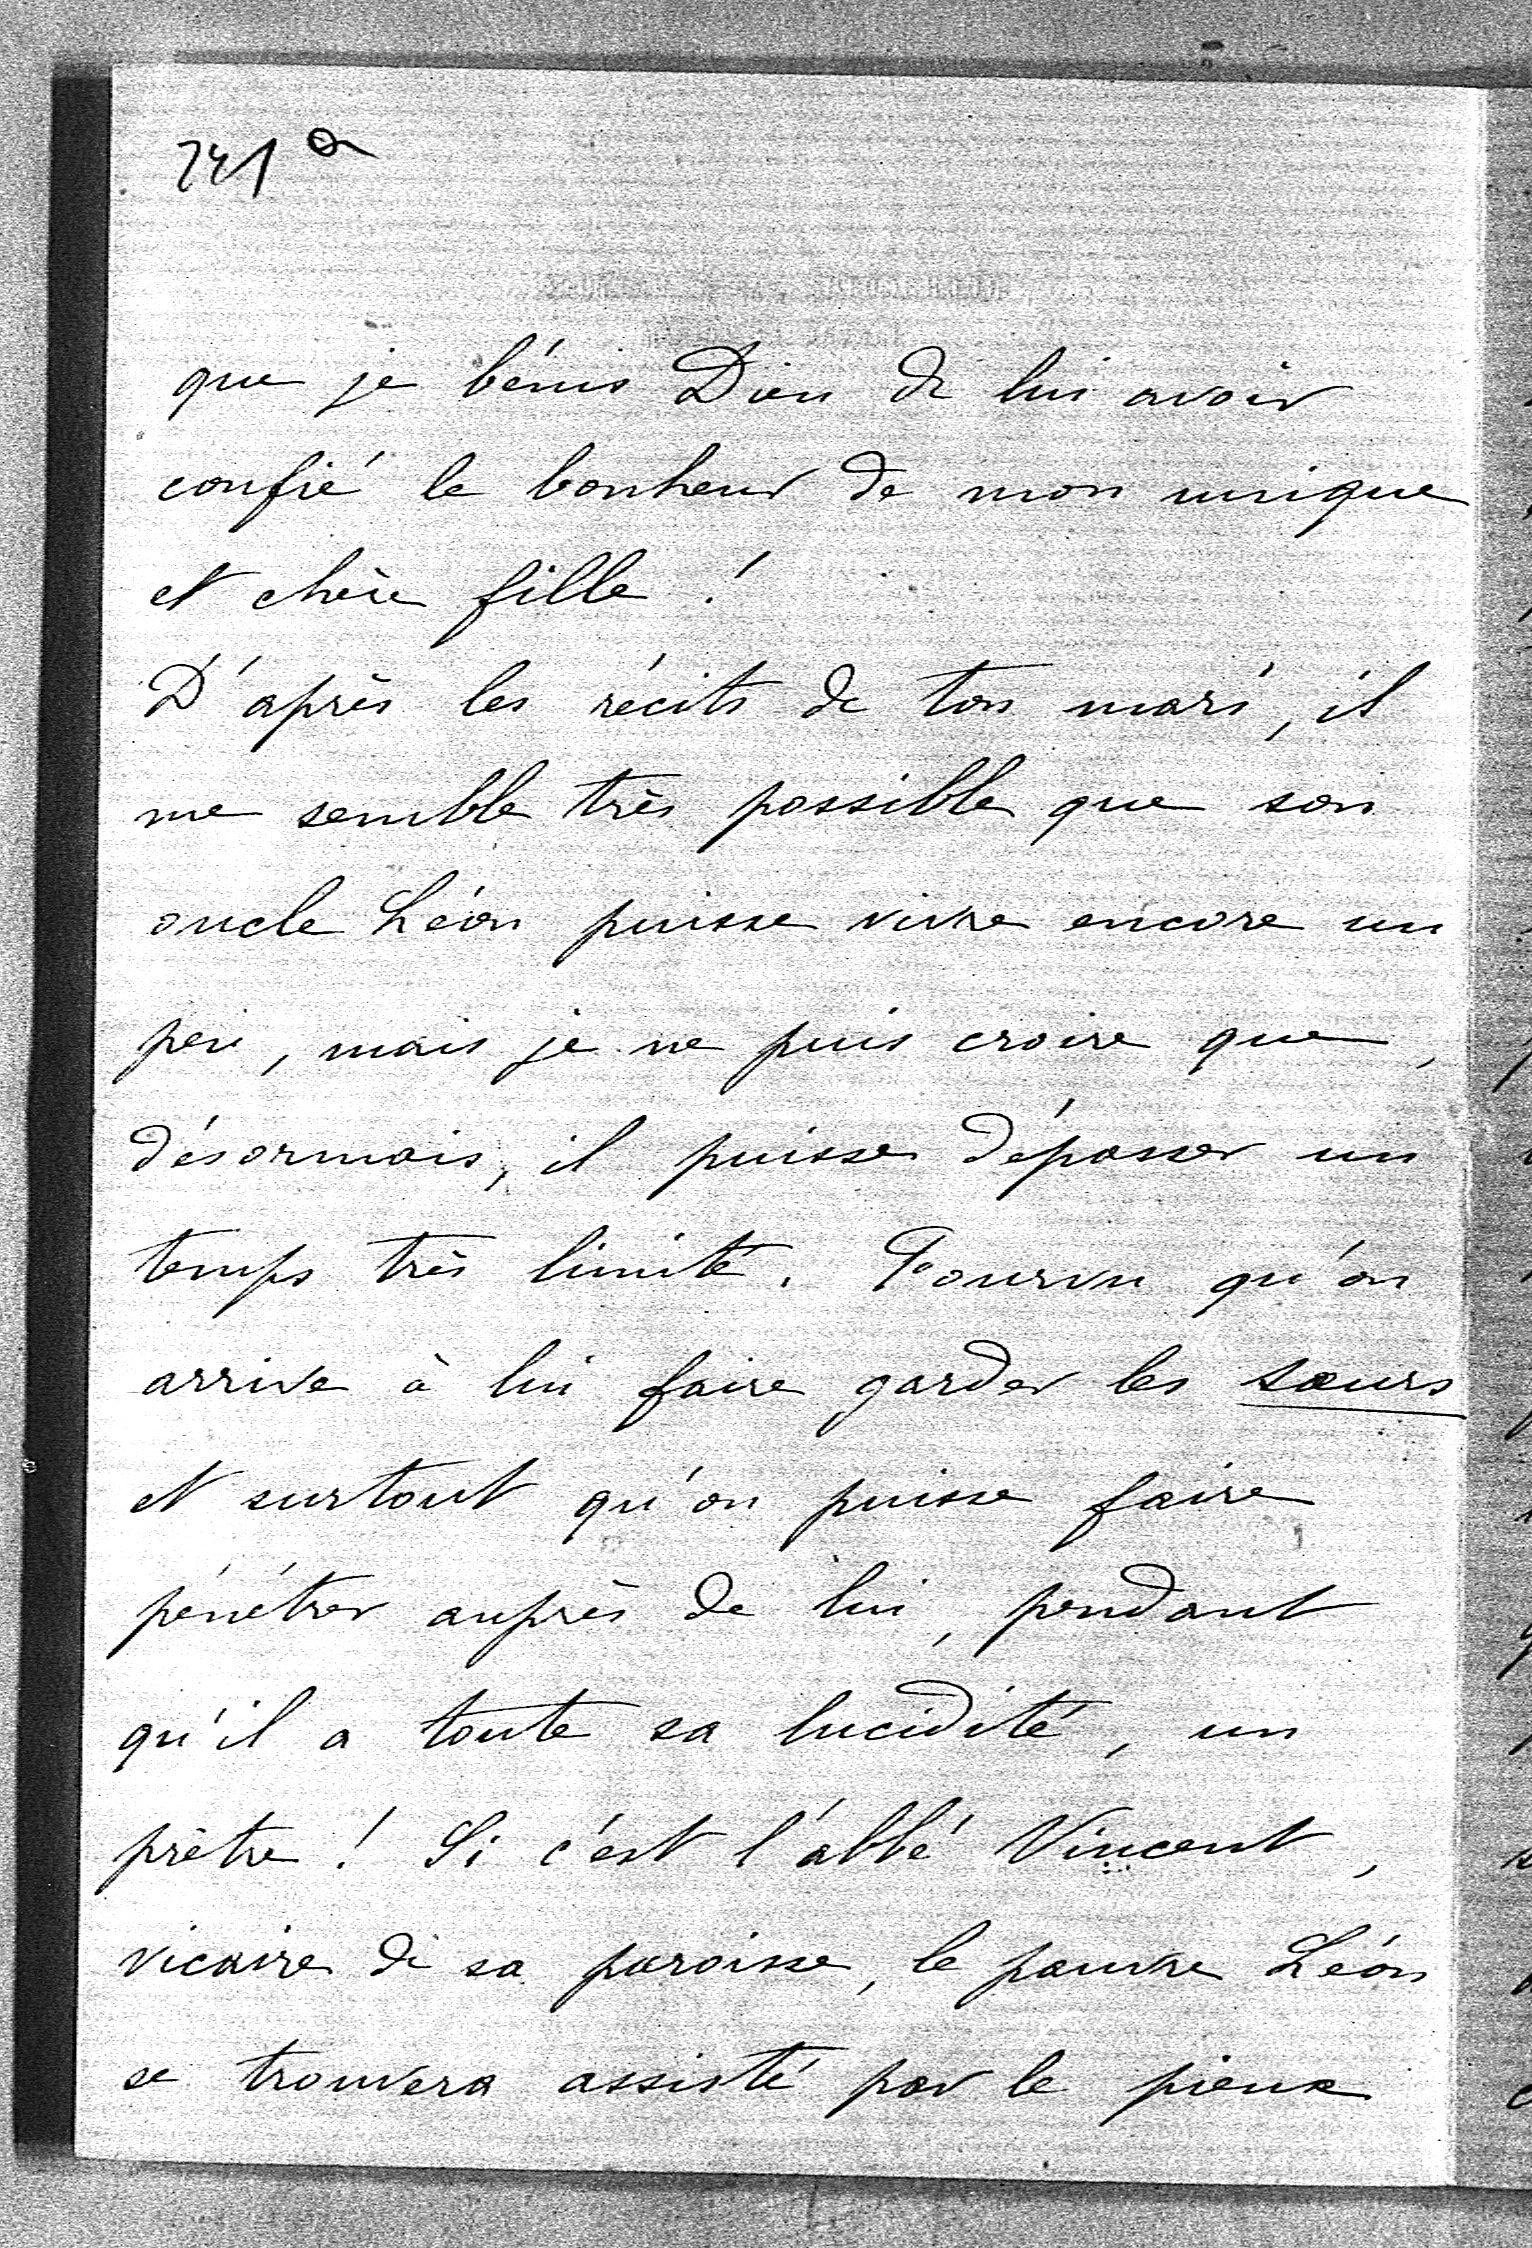 241 a
que je bénis Dieu de lui avoir
confié le bonheur de mon unique
et chère fille !
D'après les récits de ton mari, il
me semble très possible que son
oncle Léon puisse vivre encore un
peu, mais je ne puis croire que,
désormais, il puisse dépasser un
temps très limité. Pourvu qu'on
arrive à lui faire garder les sœurs
et surtout qu'on puisse faire
pénétrer auprès de lui, pendant
qu'il a toute sa lucidité, un
prêtre ! Si c'est l'abbé Vincent,
vicaire de sa paroisse, le pauvre Léon
se trouvera assisté par le pieux